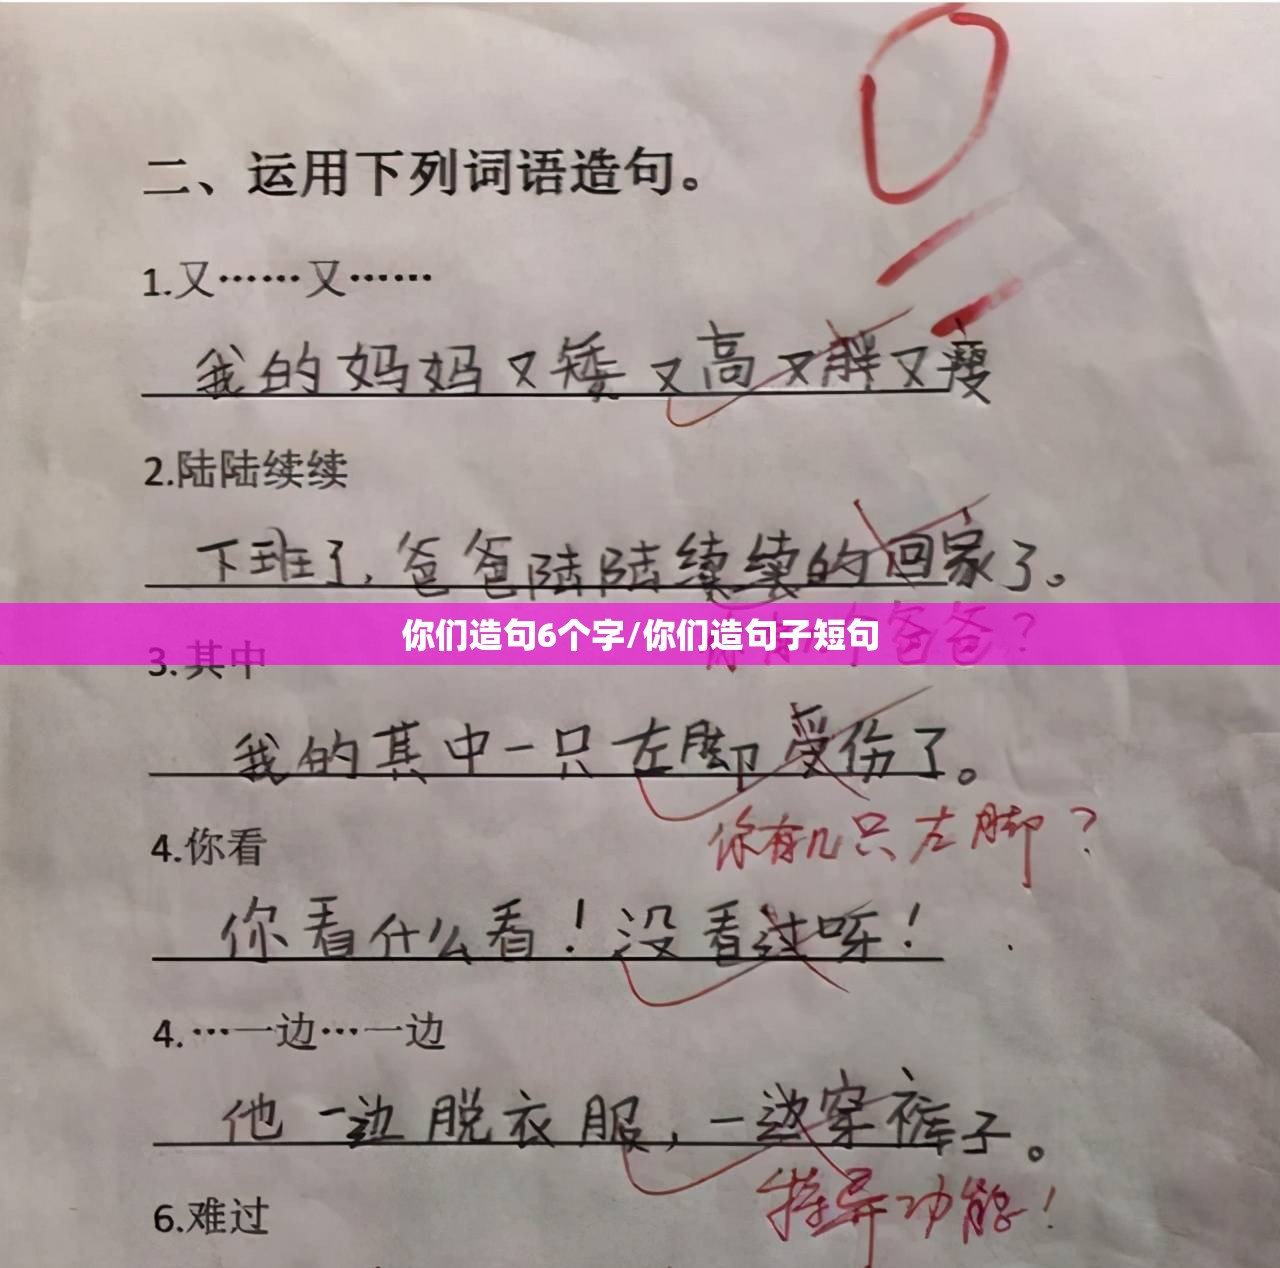 0
二、运用下列词语造句。
1.又……又……
我的妈妈又矮又高又胖又瘦
2.陆陆续续
下班了,爸爸陆陆续续的回家了。
你有几个爸爸？
你们造句6个字/你们造句子短句
3.其中
我的其中一只左脚受伤了。
你有几只左脚？
4.你看
你看什么看！没看过呀！
4.…一边…一边
他一边脱衣服,一边穿裤子。
特异功能！
6.难过